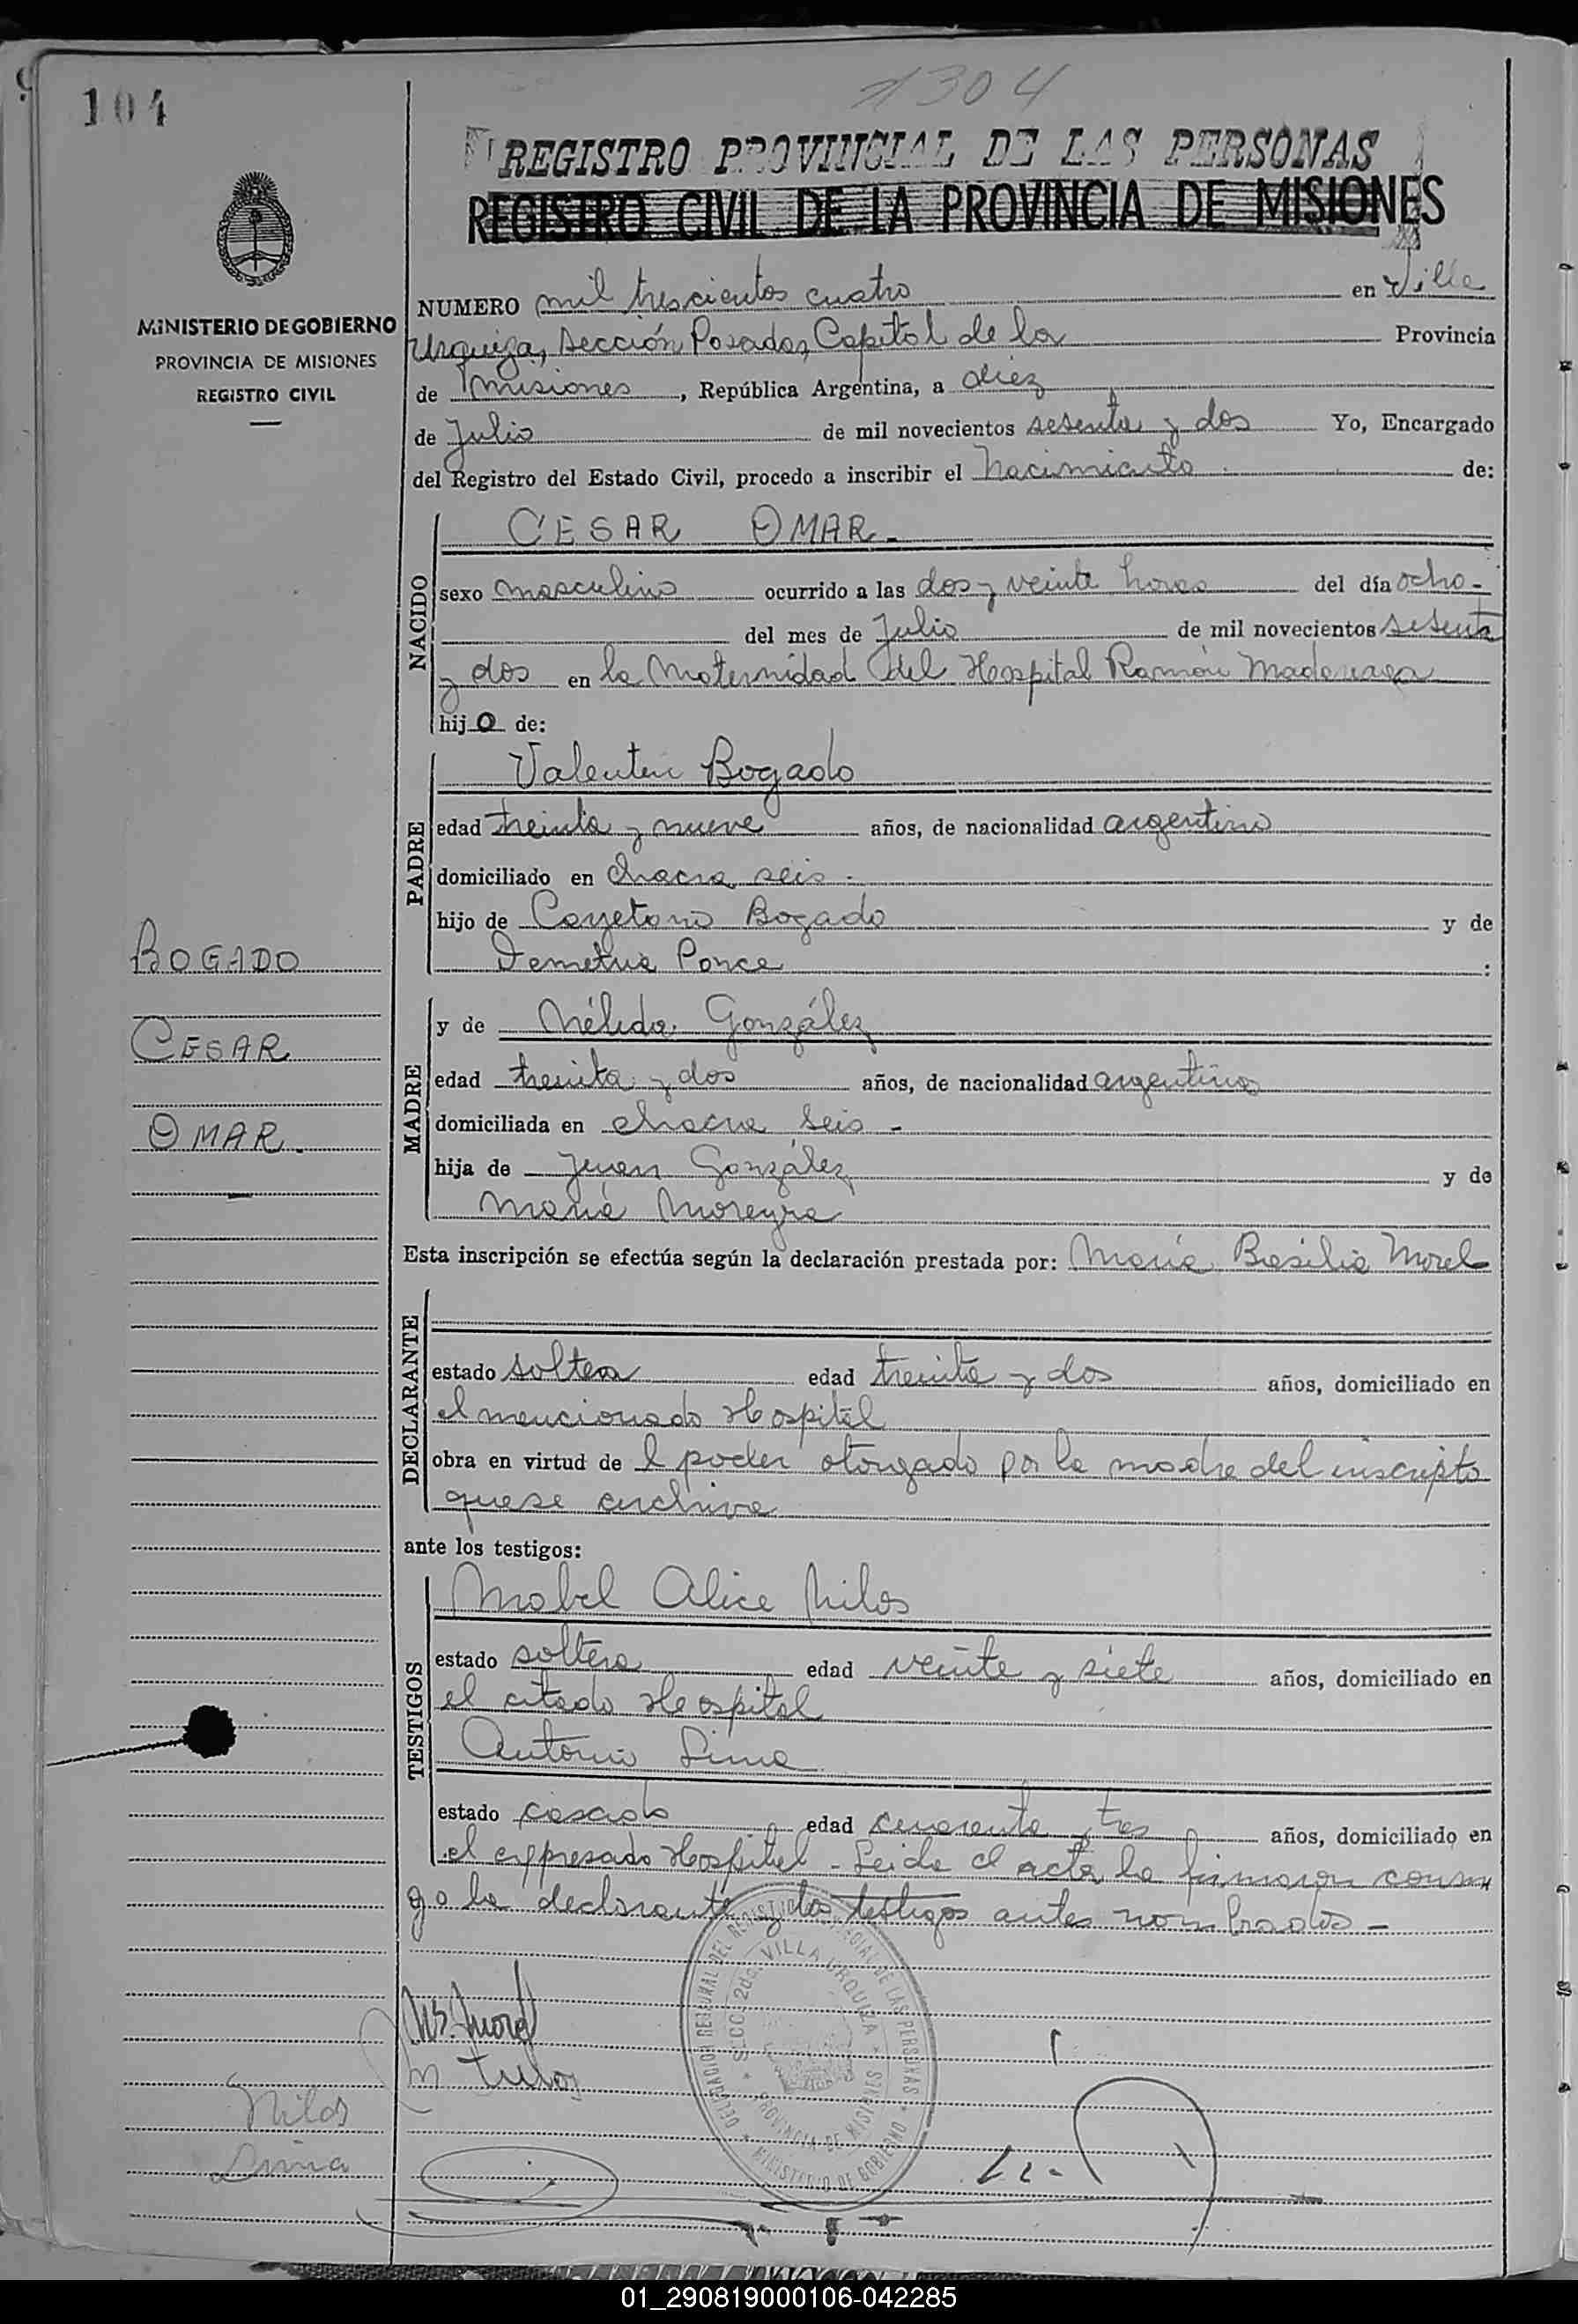 104
1304
REGISTRO PROVINCIAL DE LAS PERSONAS
REGISTRO CIVIL DE LA PROVINCIA DE MISIONES
MINISTERIO DE GOBIERNO
PROVINCIA DE MISIONES
REGISTRO CIVIL
NUMERO mil trescientos cuatro en Villa
Urquiza, Sección Posadas, Capital de la Provincia
de Misiones, República Argentina, a diez
de Julio de mil novecientos sesenta y dos Yo, Encargado
del Registro del Estado Civil, procedo a inscribir el nacimiento de:
NACIDO
CESAR OMAR.-
sexo masculino ocurrido a las dos y veinte horas del día ocho-
del mes de Julio de mil novecientos sesenta
y dos en la Maternidad del Hospital Ramón Madariaga
hijo de:
PADRE
Valentin Bogado
edad treinta y nueve años, de nacionalidad argentino
domiciliado en chacra seis.-
hijo de Cayetano Bogado y de
Demetria Ponce :
BOGADO
CESAR
OMAR.
MADRE
y de Nélida González
edad treinta y dos años, de nacionalidad argentina
domiciliada en chacra seis -
hija de Juan González y de
María Moreyra
Esta inscripción se efectúa según la declaración prestada por: María Basilia Morel
DECLARANTE
estado soltera edad treinta y dos años, domiciliado en
el mencionado Hospital
obra en virtud de l poder otorgado por la madre del inscripto
que se archiva
ante los testigos:
TESTIGOS
Mabel Alice Nilos
estado soltera edad veinte y siete años, domiciliado en
el citado Hospital
Antonio Lima
estado casado edad cuarenta y tres años, domiciliado en
el expresado Hospital - Leida el acta la firmaron conmi
go la declarante y los testigos antes nombrados -
DELEGACION REGIONAL DEL REGISTRO PROVINCIAL DE LAS PERSONAS
SECC. 2da. VILLA URQUIZA
PROVINCIA DE MISIONES
MINISTERIO DE GOBIERNO
M B. Morel
Nilos
Lima
01_290819000106-042285